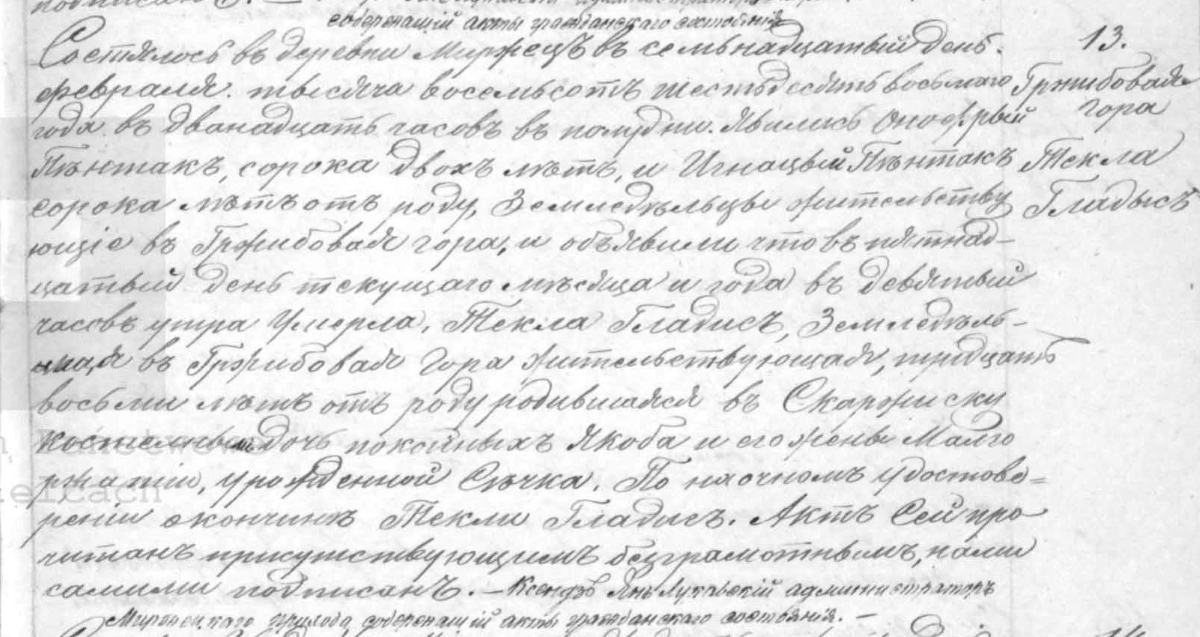 содержащій акты гражданскаго состоянія
Состялось въ деревни Миржецъ въ семьнадцатый день.
февраля. тысяча восемьсотъ шестьдесятъ восьмаго
года въ дванадцать часовъ въ полудни. Явились Онофрый
Пѣнтакъ, сорока двохъ лѣтъ, и Игнацый Пѣнтакъ
сорока лѣтъ отъ роду, Земледѣльцы жительству
ющіе въ Гржибовая гора, и объявили что въ пятнад-
цатый день текущаго мѣсяца и года въ девятый
часовъ утра Умерла, Текла Гладисъ, Земледѣль-
ная въ Гржибовая Гора жительствующая, тридцать
восьми лѣтъ отъ роду родившаяся въ Скаржиску
костельнымъ дочь покойныхъ Якоба и его жены Малго
ржатіи, урожденной Сѣчка. По наочномъ удостове=
реніи окончинѣ Текли Гладисъ. Актъ Сей про
читанъ присутствующимъ безграмотнымъ, нами
самими подписанъ. — Ксендзъ Янъ администраторъ
содержащій акты гражданскаго состоянія. —
13.
Гржибовая
гора
Текла
Гладысъ